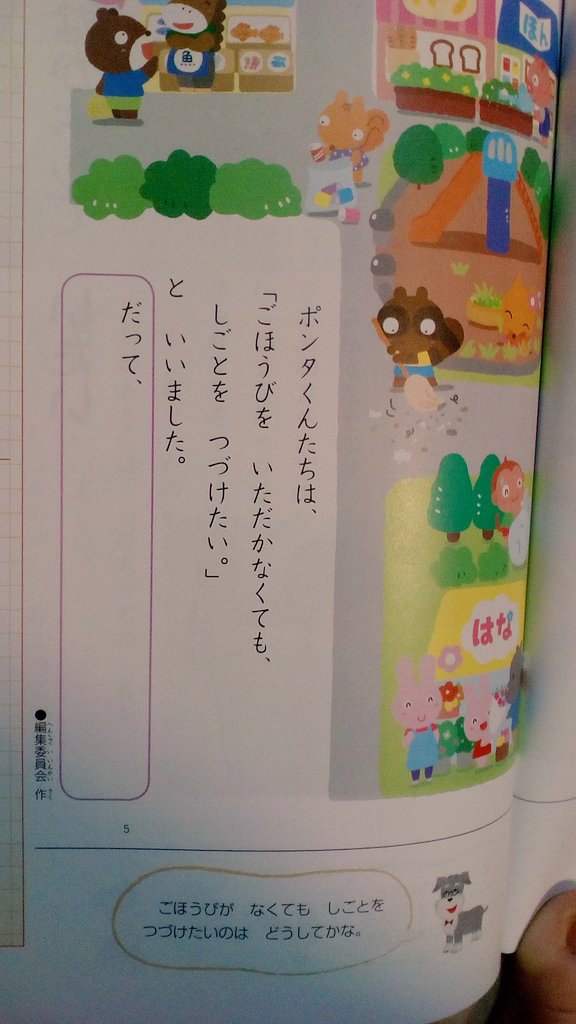 魚
ほん
はな
ポンタくんたちは、
「ごほうびを いただかなくても、
しごとを つづけたい。」
と いいました。
だって、
●編集委員会 作
へんしゅういいんかい さく
5
ごほうびが なくても しごとを
つづけたいのは どうしてかな。